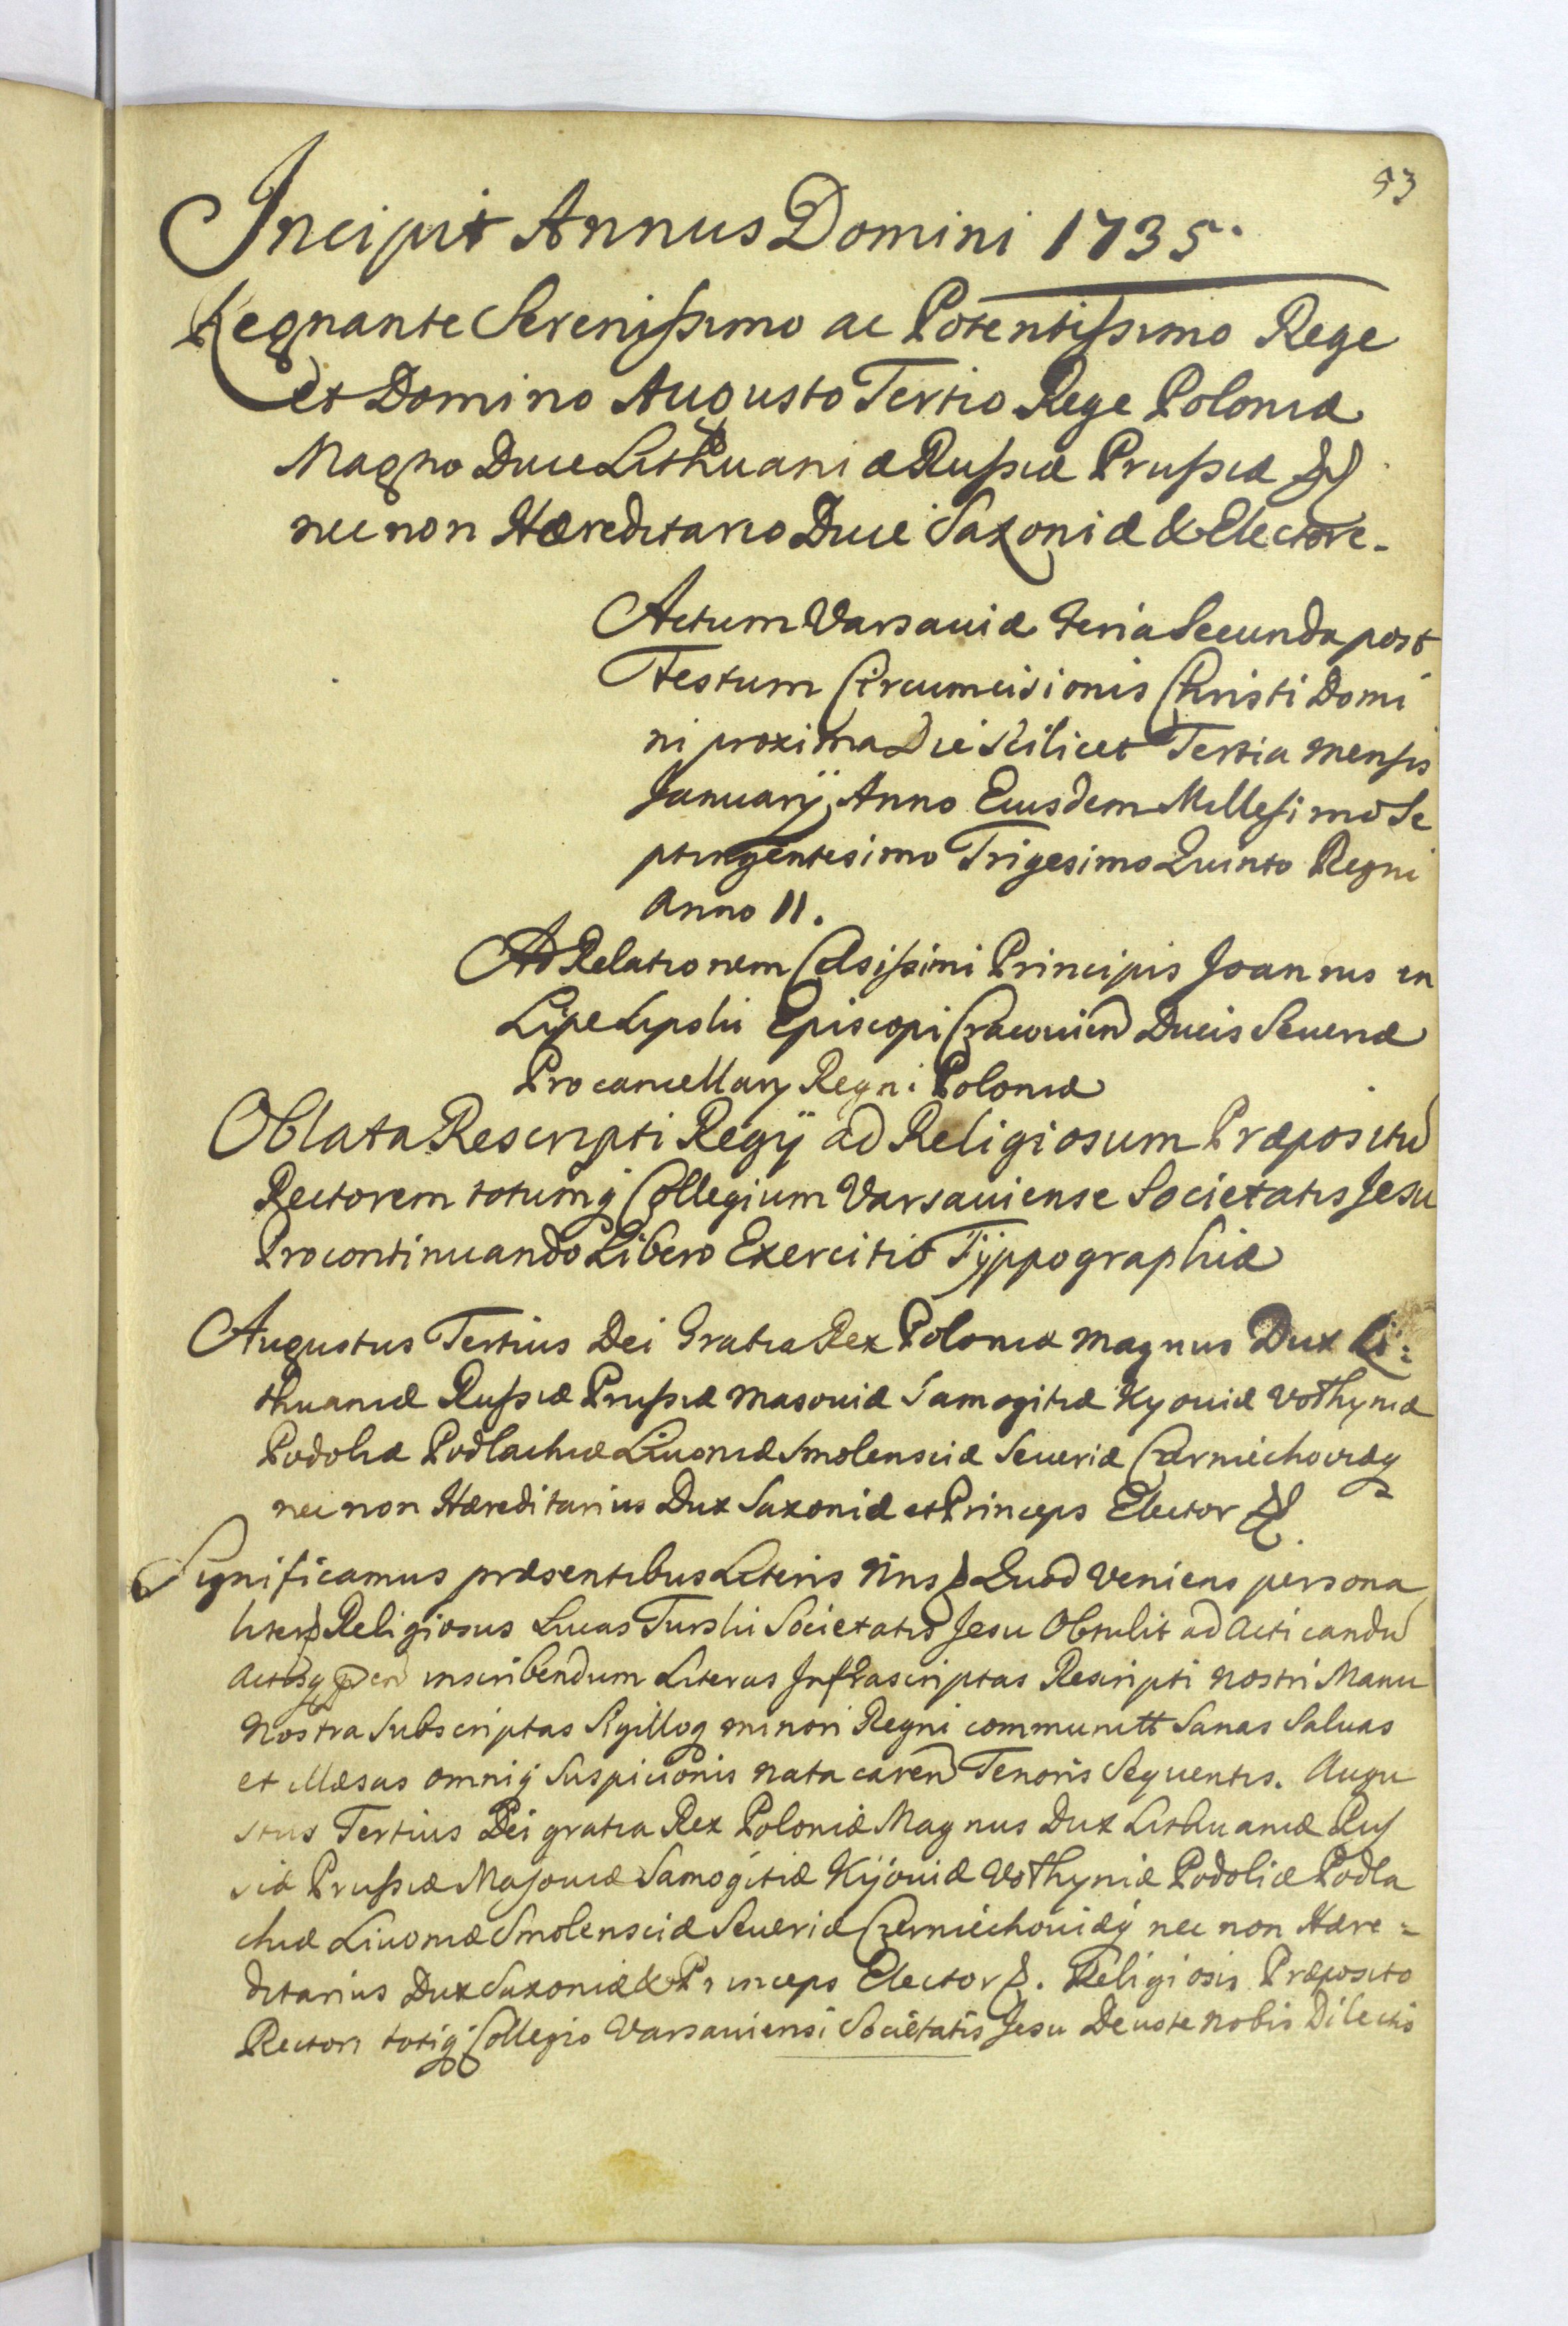 53
Incipit Annus Domini 1735.
Regnante Serenissimo ac Potentissimo Rege
et Domino Augusto Tertio Rege Poloniæ
Magno Duce Lithuaniæ Russiæ Prussiæ &c
nec non Hæreditario Duce Saxoniæ & Electore.
Actum Varsaviæ Feria Secunda post
Festum Circumcisionis Christi Domi
ni proxima Die scilicet Tertia mensis
Januarÿ Anno Eiusdem Millesimo Se
ptingentesimo Trigesimo Quinto Regni
Anno II.
Ad Relationem Celsissimi Principis Joannis in
Lipe Lipski Episcopi Cracovien Ducis Severiæ
Procancellarÿ Regni Poloniæ
Oblata Rescripti Regÿ ad Religiosum Præpositu
Rectorem totumq Collegium Varsauiense Societatis Jesu
Pro continuando Libero Exercitio Tÿppographiæ
Augustus Tertius Dei Gratia Rex Poloniæ Magnus Dux Li:
thuaniæ Russiæ Prussiæ Masoviæ Samogitiæ Kyouiæ Volhyniæ
Podoliæ Podlachiæ Liuoniæ Smolensciæ Seueriæ Czerniechouiæq
nec non Hæreditarius Dux Saxoniæ et Princeps Elector &c.
Significamus præsentibus Literis nris Quod veniens persona
liter Religiosus Lucas Turski Societatis Jesu Obtulit ad acticandu
actisq inscribendum Literas Infrascriptas Rescripti nostri Manu
Nostra Subscriptas Sigilloq minori Regni communitt Sanas Saluas
et Illæsas omniq Suspicionis nota caren Tenoris Sequentis. Augu
stus Tertius Dei gratia Rex Poloniæ Magnus Dux Lithuaniæ Rus
siæ Prussiæ Masouiæ Samogitiæ Kijouiæ Volhyniæ Podoliæ Podla
chiæ Liuoniæ Smolensciæ Seueriæ Czerniechouiæq nec non Hære=
ditarius Dux Saxoniæ & Princeps Elector &. Religiosis Præposito
Rectori totiq Collegio Varsauiensi Societatis Jesu Deuote nobis Dilectis